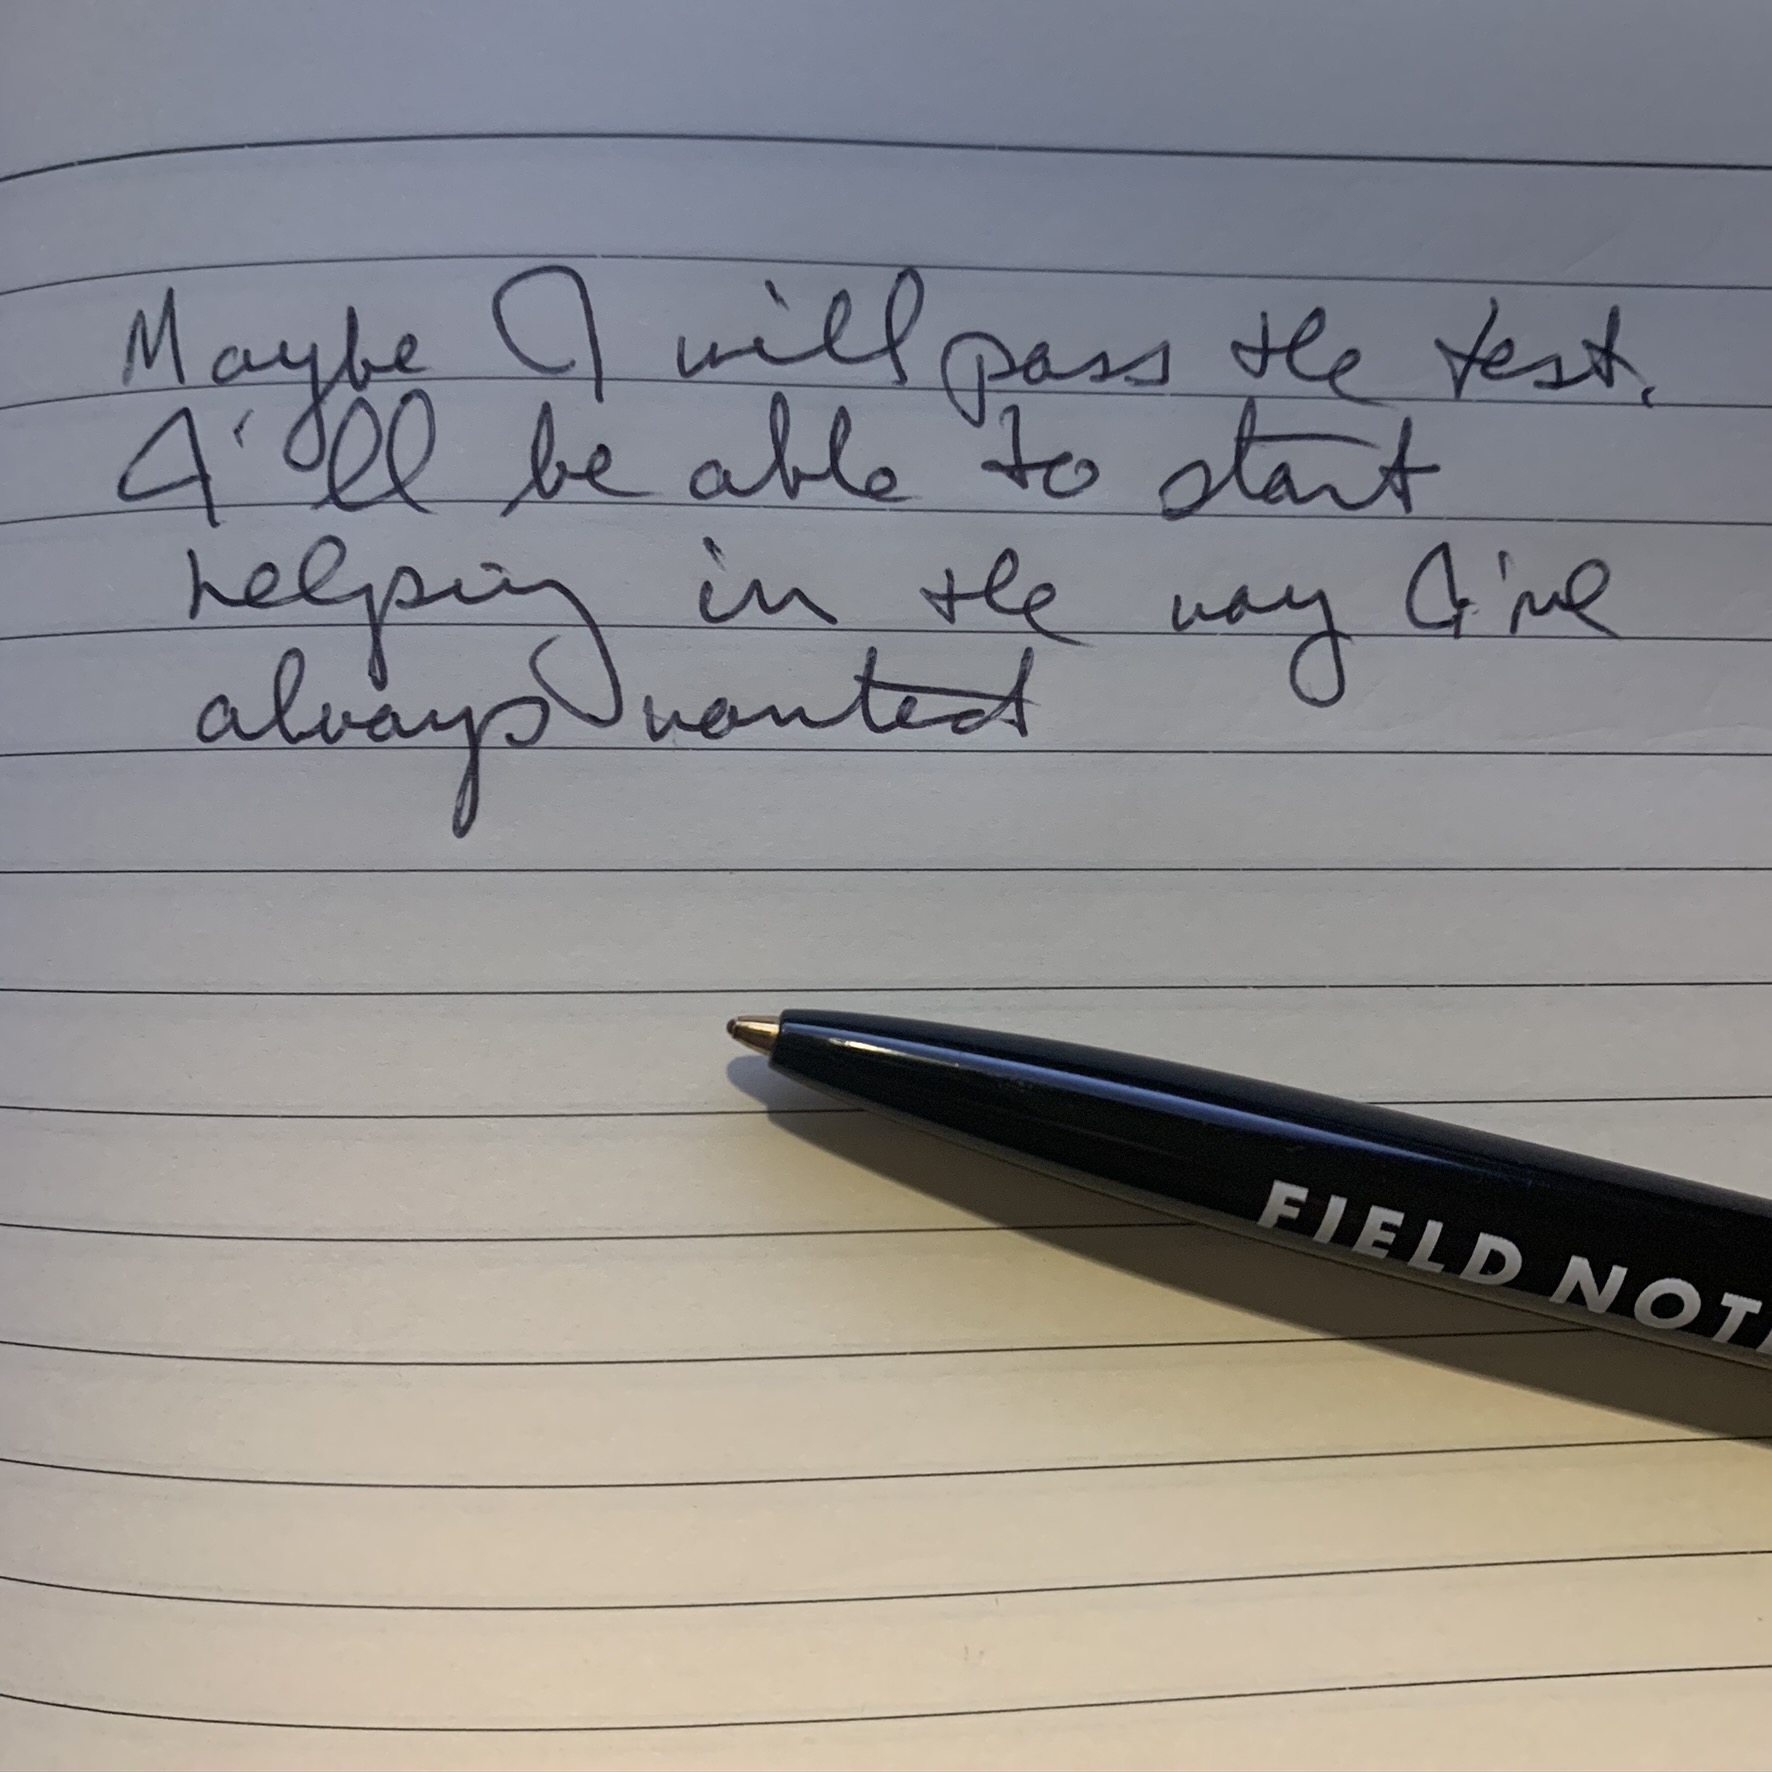 Maybe I will pass the test.
I'll be able to start
helping in the way I've
always wanted
FIELD NOT